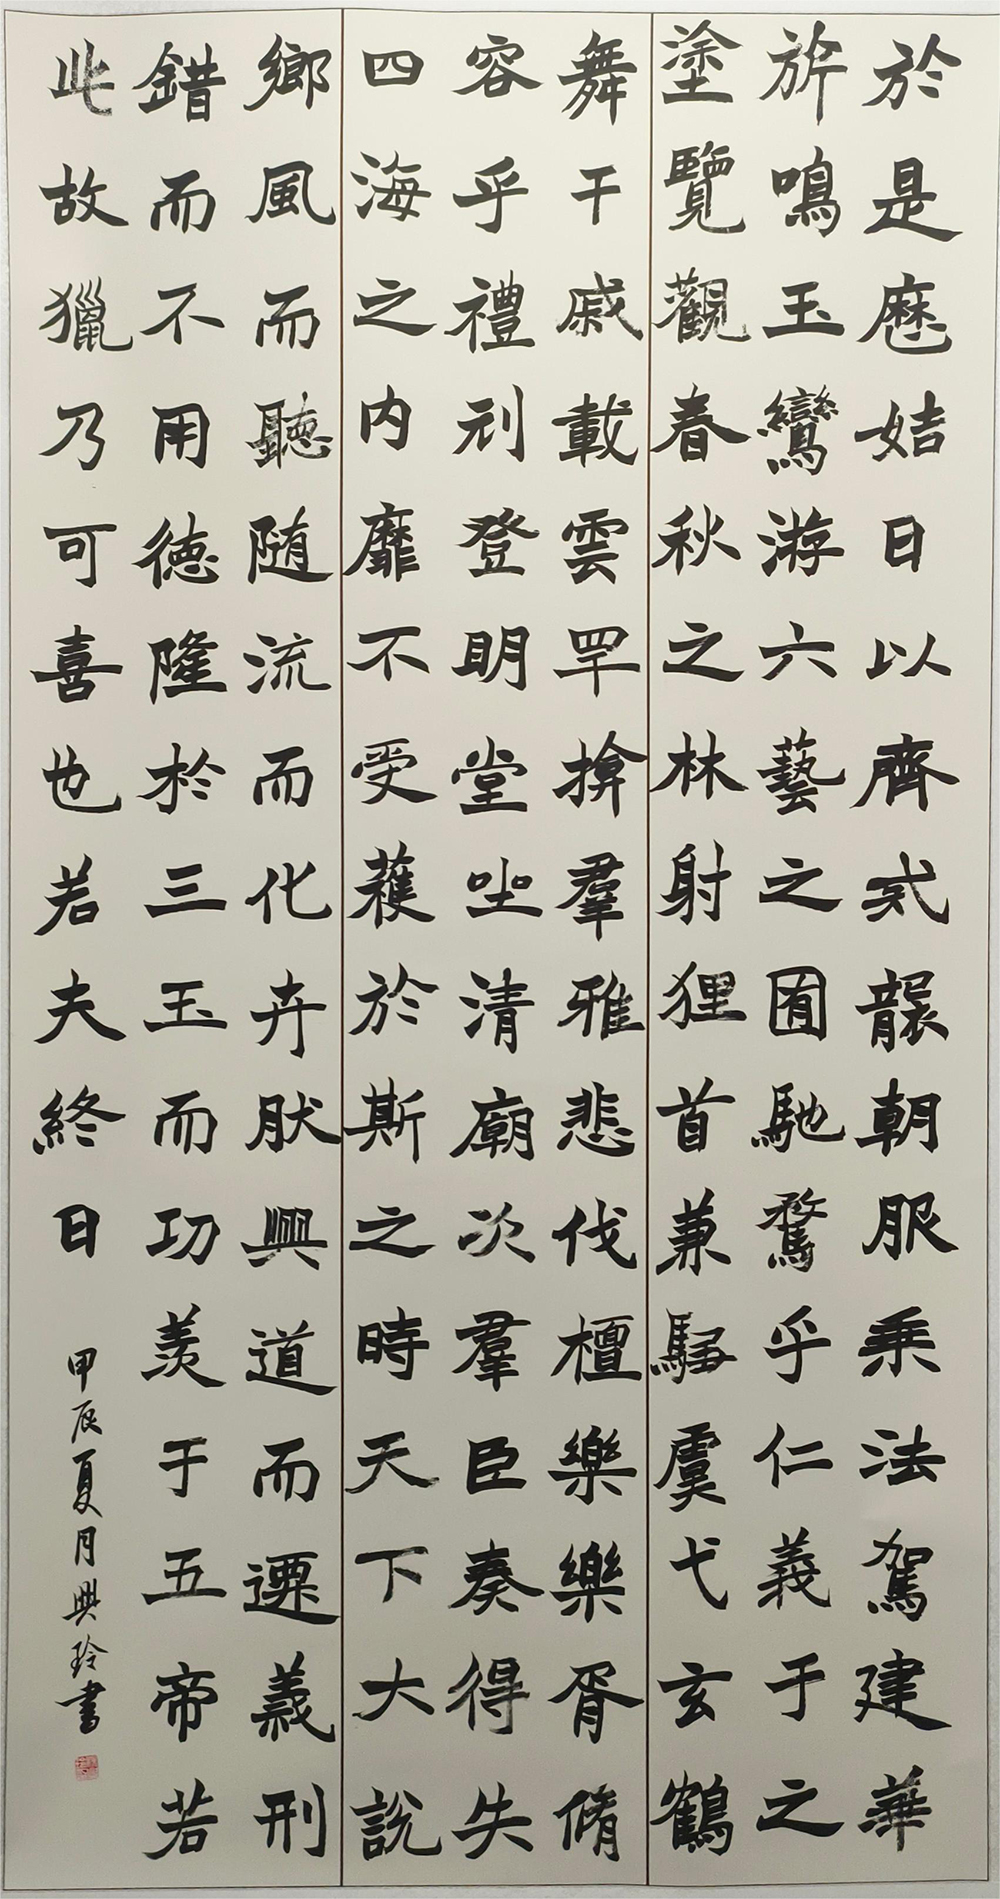 於是歴姞日以齊戒襲朝服乗法駕建華
旂鳴玉鸞游六藝之囿馳騖乎仁義于之
塗覽觀春秋之林射狸首兼騶虞弋玄鶴
舞干戚載雲罕揜羣雅悲伐檀樂樂胥脩
容乎禮登明堂坐清廟次羣臣奏得失
四海之内靡不受蒦於斯之時天下大說
鄉風而聽随流而化卉肰興道而遷義刑
錯而不用徳隆於三玉而功羡于五帝若
此故獵乃可喜也若夫終日
甲辰夏月興玲書